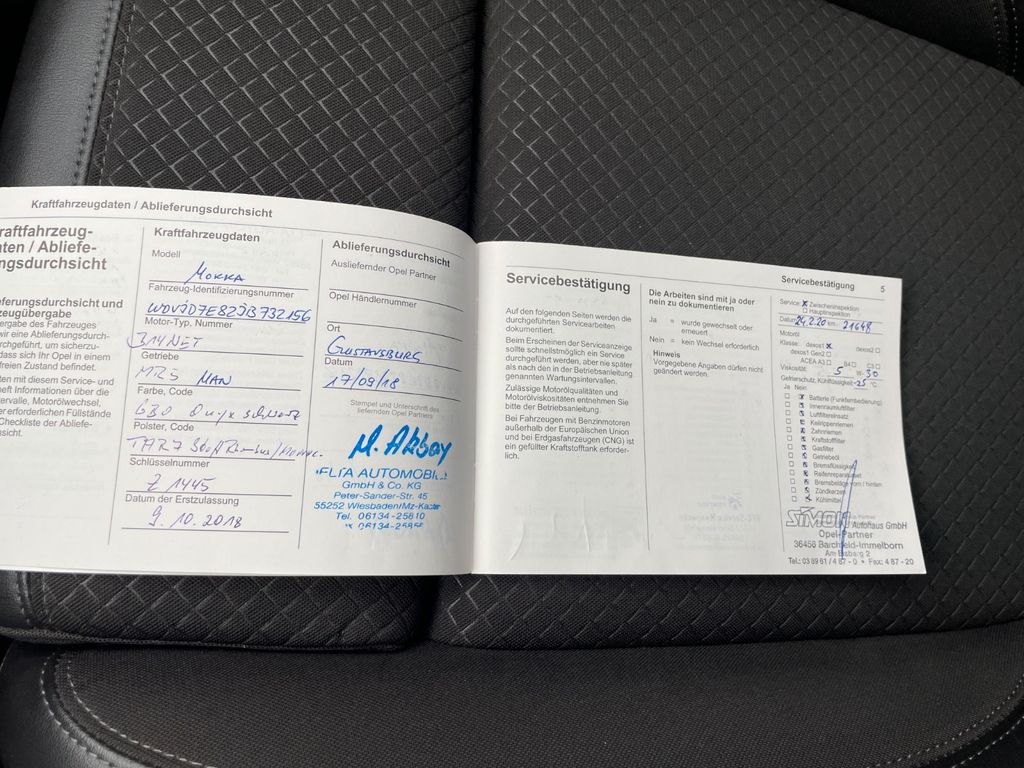 Kraftfahrzeugdaten / Ablieferungsdurchsicht
raftfahrzeug-
aten / Abliefe-
ngsdurchsicht
eferungsdurchsicht und
zeugübergabe
ergabe des Fahrzeuges
wir eine Ablieferungsdurch-
rchgeführt, um sicherzu-
dass sich Ihr Opel in einem
freien Zustand befindet.
ten mit diesem Service- und
heft Informationen über die
tervalle, Motorölwechsel,
er erforderlichen Füllstände
Checkliste der Abliefe-
sicht.
Kraftfahrzeugdaten
Modell
MOKKA
Fahrzeug-Identifizierungsnummer
W0VJD7E82JB732156
Motor-Typ. Nummer
B14NET
Getriebe
MR5 MAN
Farbe, Code
GB0 Onyx schwarz
Polster, Code
TAR7 Stoff
Schlüsselnummer
Z 1445
Datum der Erstzulassung
9.10.2018
Ablieferungsdurchsicht
Ausliefernder Opel Partner
Opel Händlernummer
Ort
GUSTAVSBURG
Datum
17/09/18
Stempel und Unterschrift des
liefernden Opel Partners
M. Akbay
AUTOMOBIL
GmbH & Co. KG
Peter-Sander-Str. 45
55252 Wiesbaden/Mz-Kastel
Tel. 06134-25810
06134-25855
Servicebestätigung
Auf den folgenden Seiten werden die
durchgeführten Servicearbeiten
dokumentiert.
Beim Erscheinen der Serviceanzeige
sollte schnellstmöglich ein Service
durchgeführt werden, aber nie später
als nach den in der Betriebsanleitung
genannten Wartungsintervallen.
Zulässige Motorölqualitäten und
Motorölviskositäten entnehmen Sie
bitte der Betriebsanleitung.
Bei Fahrzeugen mit Benzinmotoren
außerhalb der Europäischen Union
und bei Erdgasfahrzeugen (CNG) ist
ein gefüllter Kraftstofftank erforder-
lich.
Die Arbeiten sind mit ja oder
nein zu dokumentieren
Ja = wurde gewechselt oder
erneuert
Nein = kein Wechsel erforderlich
Hinweis
Vorgegebene Angaben dürfen nicht
geändert werden.
Servicebestätigung 5
Service: x Zwischeninspektion
Hauptinspektion
Datum 24.2.20 km: 21648
Motoröl
Klasse: dexos1 x dexos2
dexos1 Gen2
ACEA A3 B4 C3
Viskosität: 5 W- 30
Getriebschutz, Kühlflüssigkeit -25 °C
Ja Nein
Batterie (Funkfernbedienung)
Innenraumluftfilter
Luftfiltereinsatz
Keilrippenriemen
Zahnriemen
Kraftstofffilter
Gasfilter
Getriebeöl
Bremsflüssigkeit
Reifenreparaturset
Bremsbeläge vorn / hinten
Zündkerzen
Kühlmittel
SIMON Autohaus GmbH
Opel-Partner
36456 Barchfeld-Immelborn
Am Eisberg 2
Tel.: 03 69 61 / 4 87 - 0 * Fax: 4 87 - 20